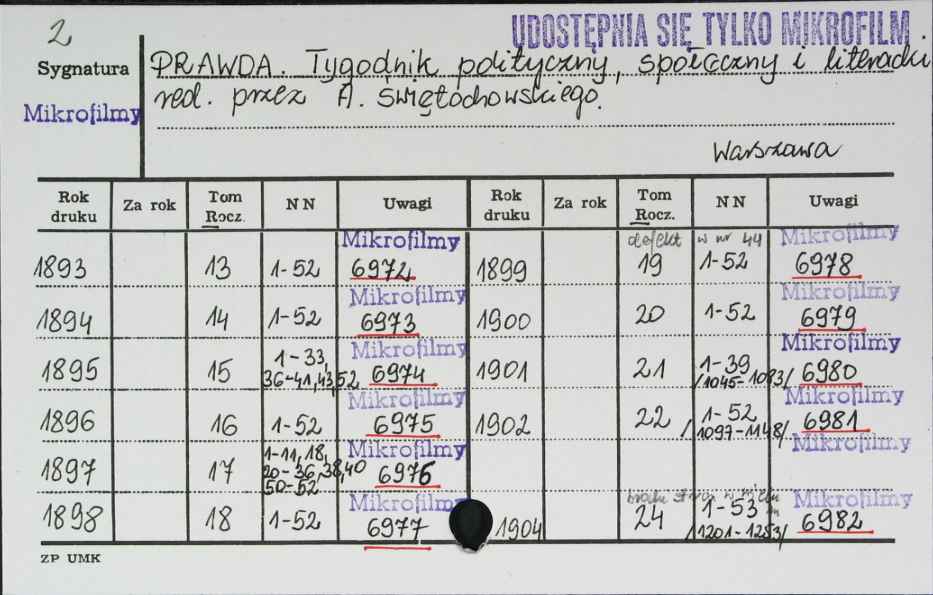 2
UDOSTĘPNIA SIĘ TYLKO MIKROFILM
Sygnatura
Mikrofilmy
PRAWDA. Tygodnik polityczny, społeczny i literacki
red. przez A. Świętochowskiego.
Warszawa
Rok druku Za rok Tom Rocz. NN Uwagi Rok druku Za rok Tom Rocz. NN Uwagi
Mikrofilmy defekt w nr 44 Mikrofilmy
1893 13 1-52 6972 1899 19 1-52 6978
Mikrofilmy Mikrofilmy
1894 14 1-52 6973 1900 20 1-52 6979
Mikrofilmy Mikrofilmy
1895 15 1-33, 36-41, 43, 52 6974 1901 21 1-39 /1045-1093/ 6980
Mikrofilmy Mikrofilmy
1896 16 1-52 6975 1902 22 1-52 /1097-1148/ 6981
Mikrofilmy Mikrofilmy
1897 17 1-11, 18, 20-36, 38, 40 50-52 6976
Mikrofilmy stron w Mikrofilmy
1898 18 1-52 6977 1904 24 1-53 /1201-1253/ 6982
ZP UMK